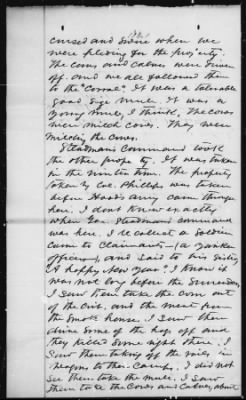 cursed and swore when we
were pleading for the property.
The cows and calves were driven
off. and we all followed them
to the "Corral". It was a tolerable
good size mule. It was a
young mule, I think. The cows
were milch cows. They were
milking the cows.
Steadmans Command took
the other property. It was taken
in the winter time. The property
taken by Col. Phillips was taken
before Hoods army came through
here. I dont know exactly
when Gen. Steadmans command
was here. I recollect a Soldier
came to Claimants - (a Yankee
officer), and said to his Sister
"A happy New Year". I know it
was not long before the Surrender
I saw them take the corn out
of the crib. and the meat from
the smoke house. I saw them
drive some of the hogs off and
they killed some right there. I
saw them taking off the
wagons to their Camp. I did not
see them take the mule. I saw
them take the cows and calves, about